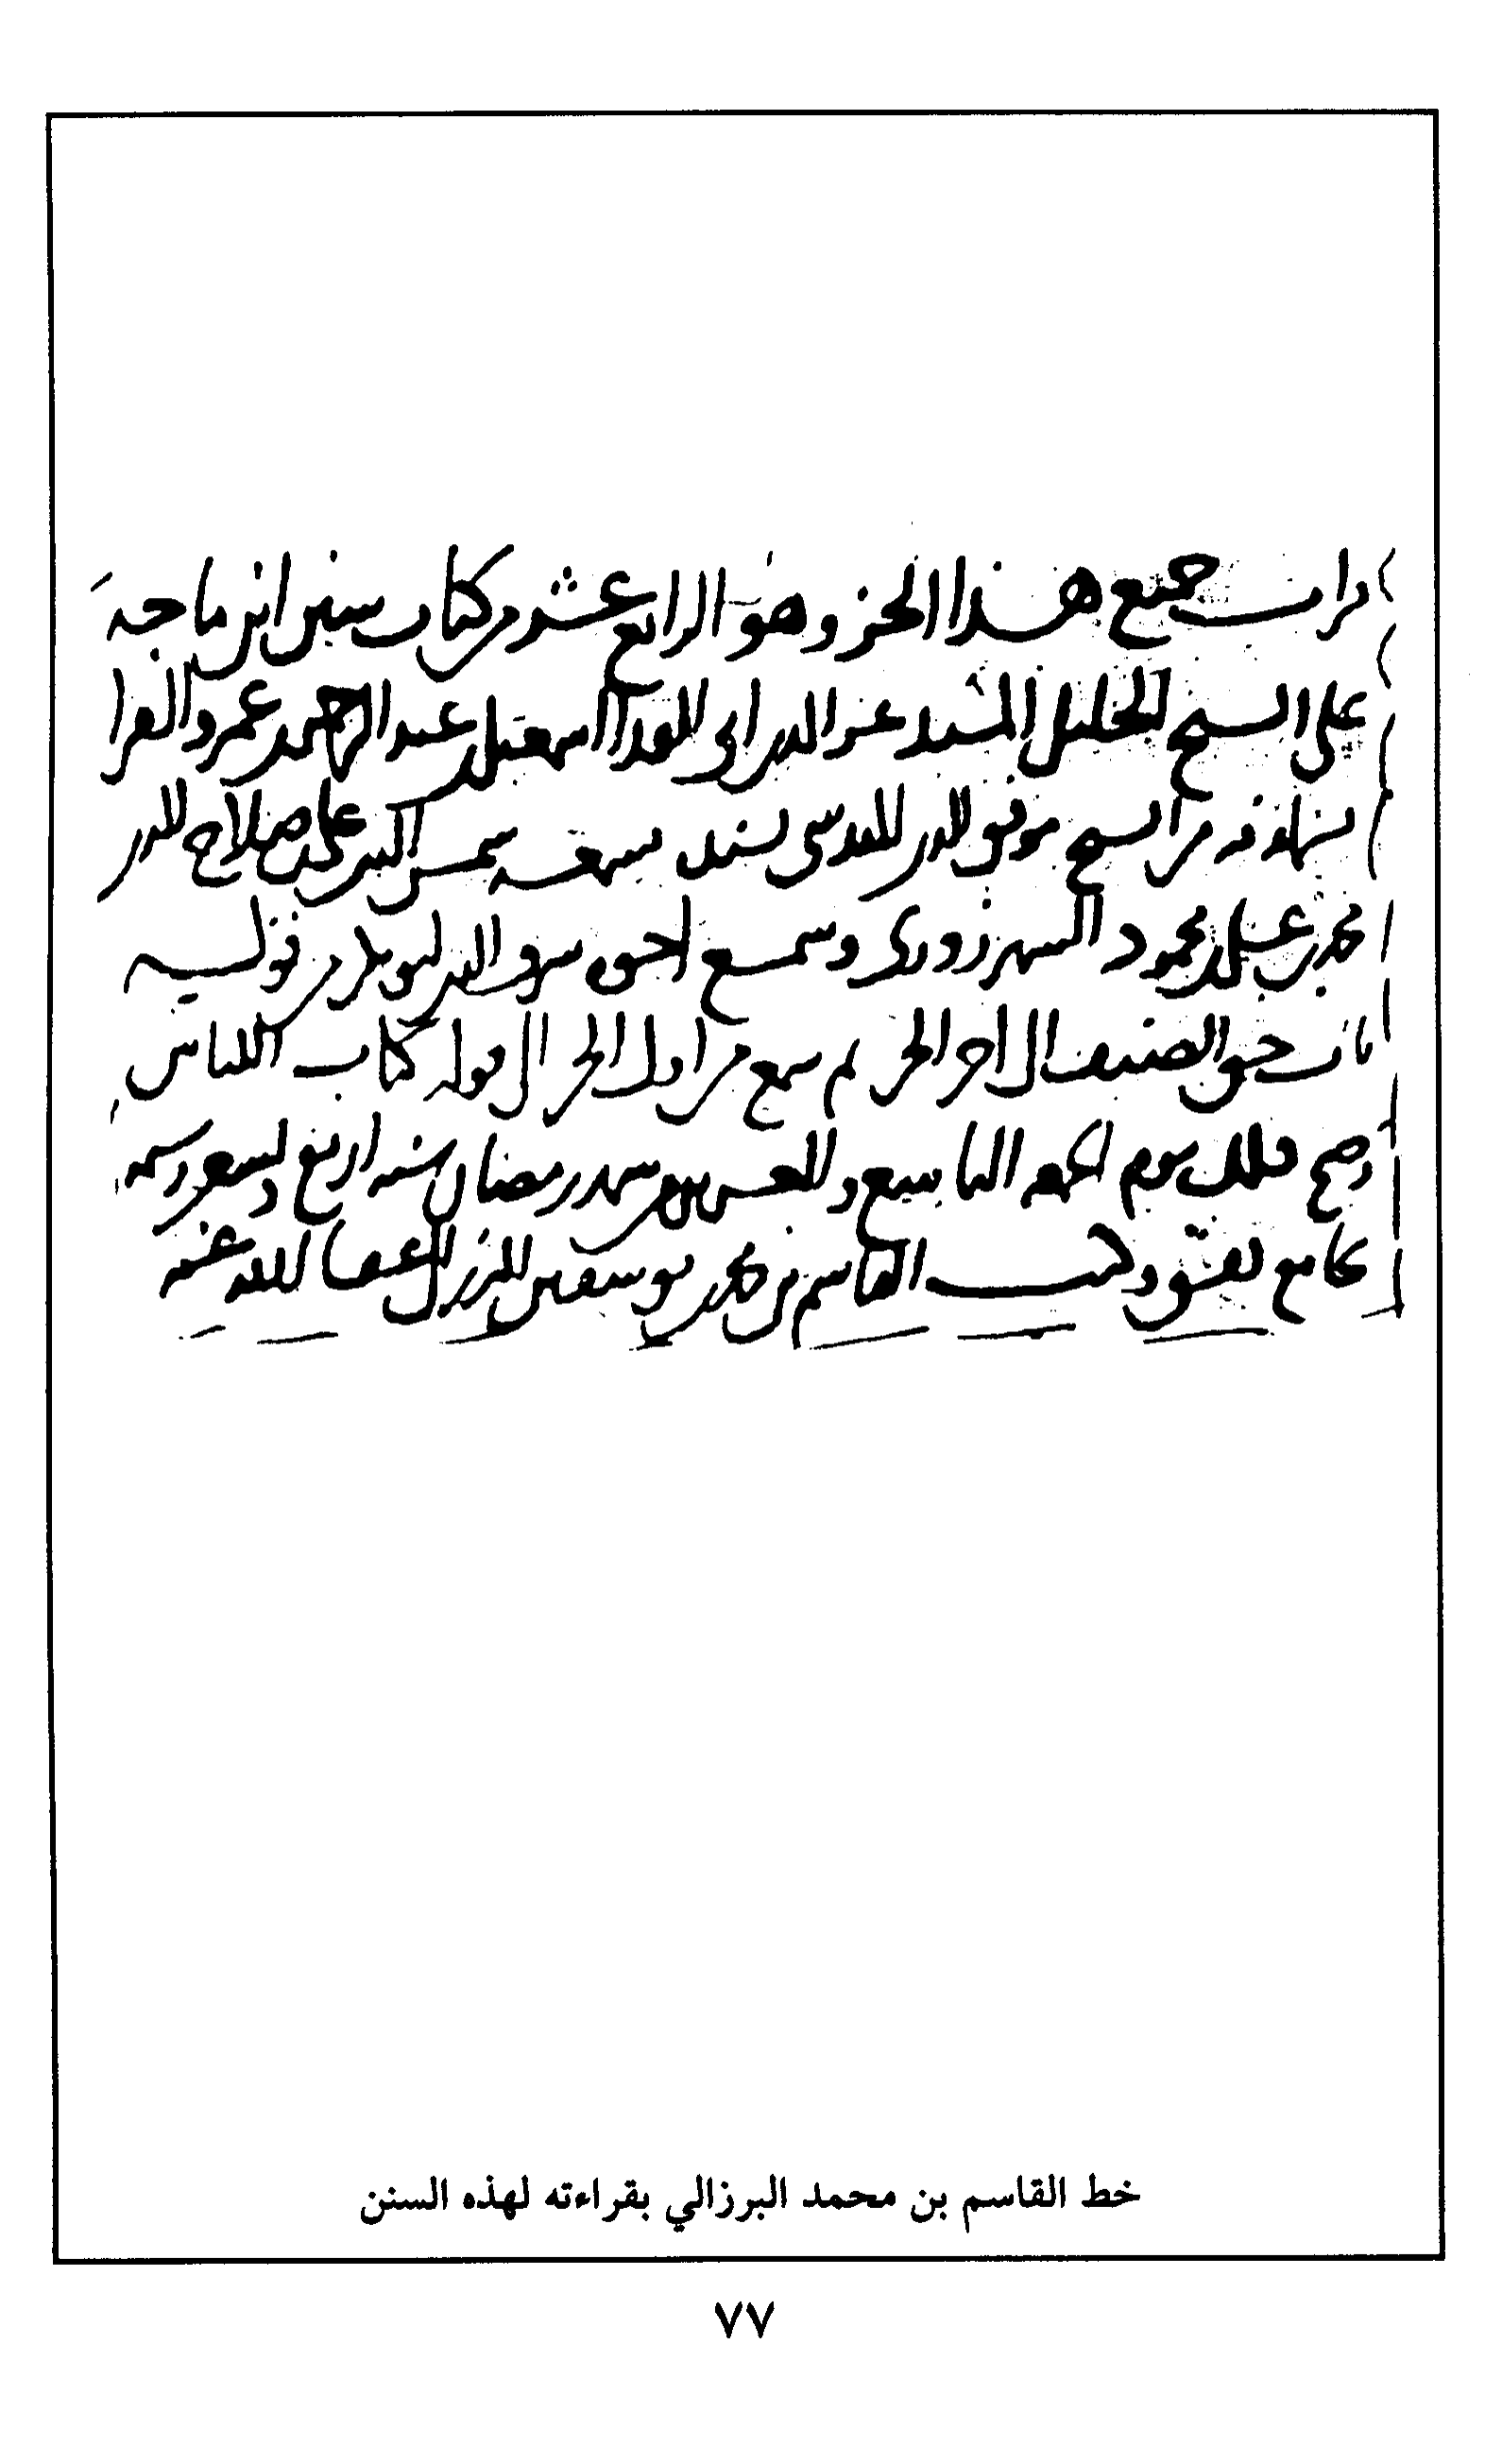 قرات جميع هذا الجزو وهو الرابع عشر من كتاب سنن ابن ماجه
على الشيخ الجليل المسند عز الدين ابي الفدا اسمعيل بن عبد الرحمن بن عمرو الفرا
بسماعه من الشيخ موفق الدين المقدسي بسنده فسمعه شمس الدين محمد بن صلاح الدين
محمد بن علي بن محمود الشهرزوري وسمع الدين ابو بكر من قوله
باب الى اخر الجز سمع من اول الجز الى قوله كتاب اللباس
وصح ذلك يوم الجمعه التاسع والعشرين من شهر رمضان سنه اربع وتسعين وستمه
بجامع دمشق وكتب القاسم بن محمد بن يوسف بن البرزالي عفا الله عنه
خط القاسم بن محمد البرزالي بقراءته لهذه السنن
٧٧